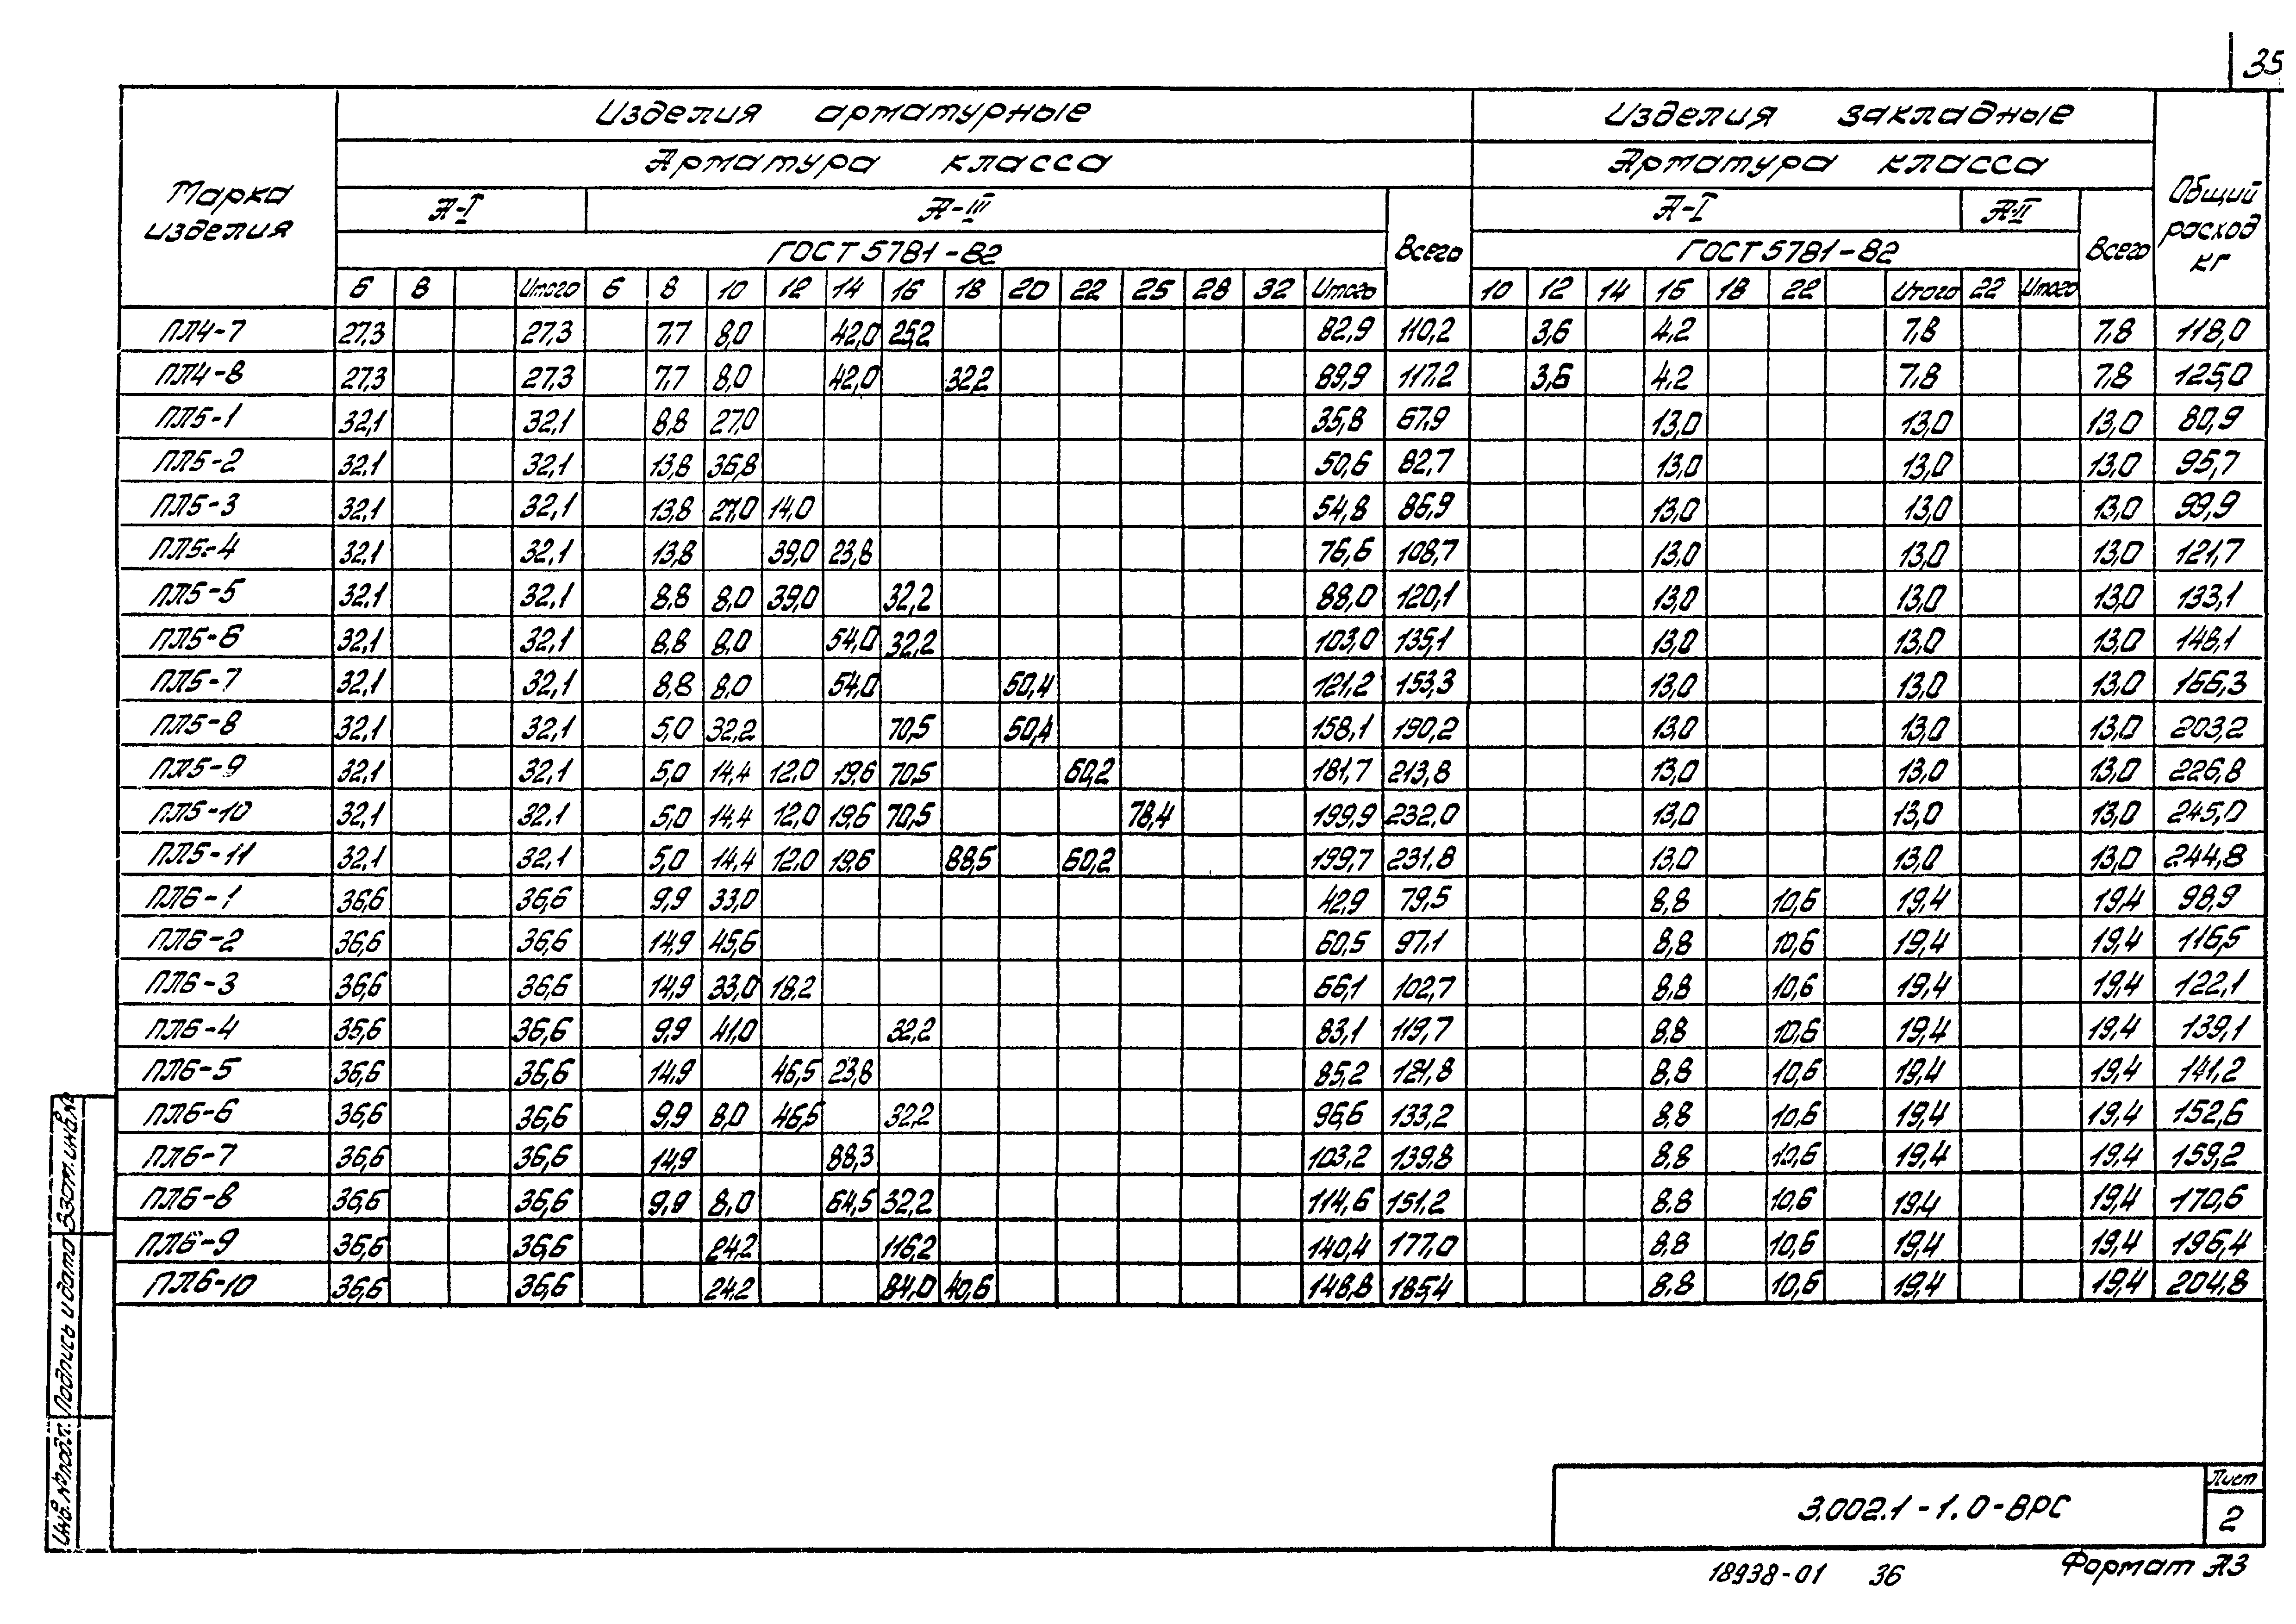 35
Марка изделия
Изделия арматурные
Изделия закладные
Общий расход кг
Арматура класса
Арматура класса
А-I А-III Всего А-I А-II Всего
ГОСТ 5781-82
ГОСТ 5781-82
6 8 Итого 6 8 10 12 14 16 18 20 22 25 28 32 Итого 10 12 14 16 18 22 Итого 22 Итого
ПЛ4-7 27,3 27,3 7,7 8,0 42,0 25,2 82,9 110,2 3,6 4,2 7,8 7,8 118,0
ПЛ4-8 27,3 27,3 7,7 8,0 42,0 32,2 89,9 117,2 3,6 4,2 7,8 7,8 125,0
ПЛ5-1 32,1 32,1 8,8 27,0 35,8 67,9 13,0 13,0 13,0 80,9
ПЛ5-2 32,1 32,1 13,8 36,8 50,6 82,7 13,0 13,0 13,0 95,7
ПЛ5-3 32,1 32,1 13,8 27,0 14,0 54,8 86,9 13,0 13,0 13,0 99,9
ПЛ5-4 32,1 32,1 13,8 39,0 23,8 76,6 108,7 13,0 13,0 13,0 121,7
ПЛ5-5 32,1 32,1 8,8 8,0 39,0 32,2 88,0 120,1 13,0 13,0 13,0 133,1
ПЛ5-6 32,1 32,1 8,8 8,0 54,0 32,2 103,0 135,1 13,0 13,0 13,0 148,1
ПЛ5-7 32,1 32,1 8,8 8,0 54,0 50,4 121,2 153,3 13,0 13,0 13,0 166,3
ПЛ5-8 32,1 32,1 5,0 32,2 70,5 50,4 158,1 190,2 13,0 13,0 13,0 203,2
ПЛ5-9 32,1 32,1 5,0 14,4 12,0 19,6 70,5 60,2 181,7 213,8 13,0 13,0 13,0 226,8
ПЛ5-10 32,1 32,1 5,0 14,4 12,0 19,6 70,5 78,4 199,9 232,0 13,0 13,0 13,0 245,0
ПЛ5-11 32,1 32,1 5,0 14,4 12,0 19,6 88,5 60,2 199,7 231,8 13,0 13,0 13,0 244,8
ПЛ6-1 36,6 36,6 9,9 33,0 42,9 79,5 8,8 10,6 19,4 19,4 98,9
ПЛ6-2 36,6 36,6 14,9 45,6 60,5 97,1 8,8 10,6 19,4 19,4 116,5
ПЛ6-3 36,6 36,6 14,9 33,0 18,2 66,1 102,7 8,8 10,6 19,4 19,4 122,1
ПЛ6-4 36,6 36,6 9,9 41,0 32,2 83,1 119,7 8,8 10,6 19,4 19,4 139,1
ПЛ6-5 36,6 36,6 14,9 46,5 23,8 85,2 121,8 8,8 10,6 19,4 19,4 141,2
ПЛ6-6 36,6 36,6 9,9 8,0 46,5 32,2 96,6 133,2 8,8 10,6 19,4 19,4 152,6
ПЛ6-7 36,6 36,6 14,9 88,3 103,2 139,8 8,8 10,6 19,4 19,4 159,2
ПЛ6-8 36,6 36,6 9,9 8,0 64,5 32,2 114,6 151,2 8,8 10,6 19,4 19,4 170,6
ПЛ6-9 36,6 36,6 24,2 116,2 140,4 177,0 8,8 10,6 19,4 19,4 196,4
ПЛ6-10 36,6 36,6 24,2 84,0 40,6 148,8 185,4 8,8 10,6 19,4 19,4 204,8
Инв. № подл. Подпись и дата Взам. инв. №
3.002.1-1.0-ВРС
Лист
2
18938-01 36
Формат А3